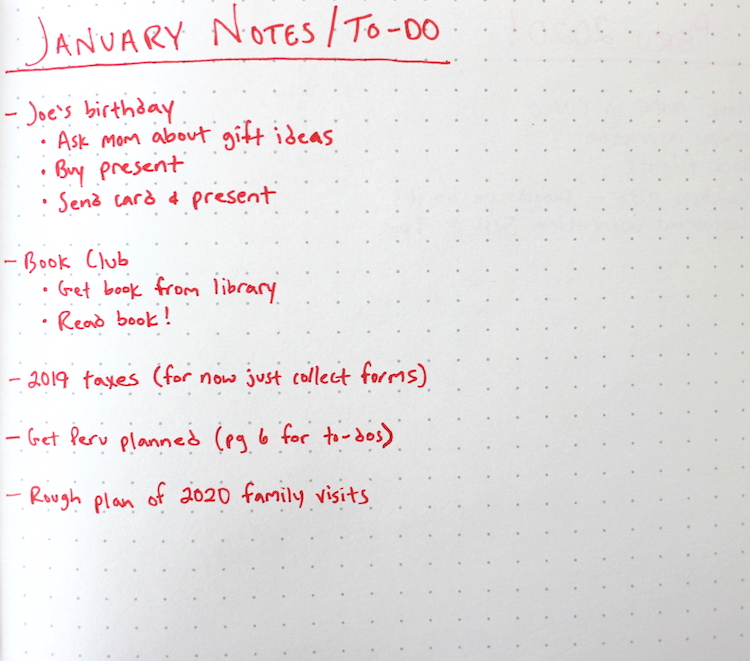 JANUARY NOTES/TO-DO
- Joe's birthday
• Ask mom about gift ideas
• Buy present
• Send card & present
- Book Club
• Get book from library
• Read book!
- 2019 taxes (for now just collect forms)
- Get Peru planned (pg 6 for to-dos)
- Rough plan of 2020 family visits